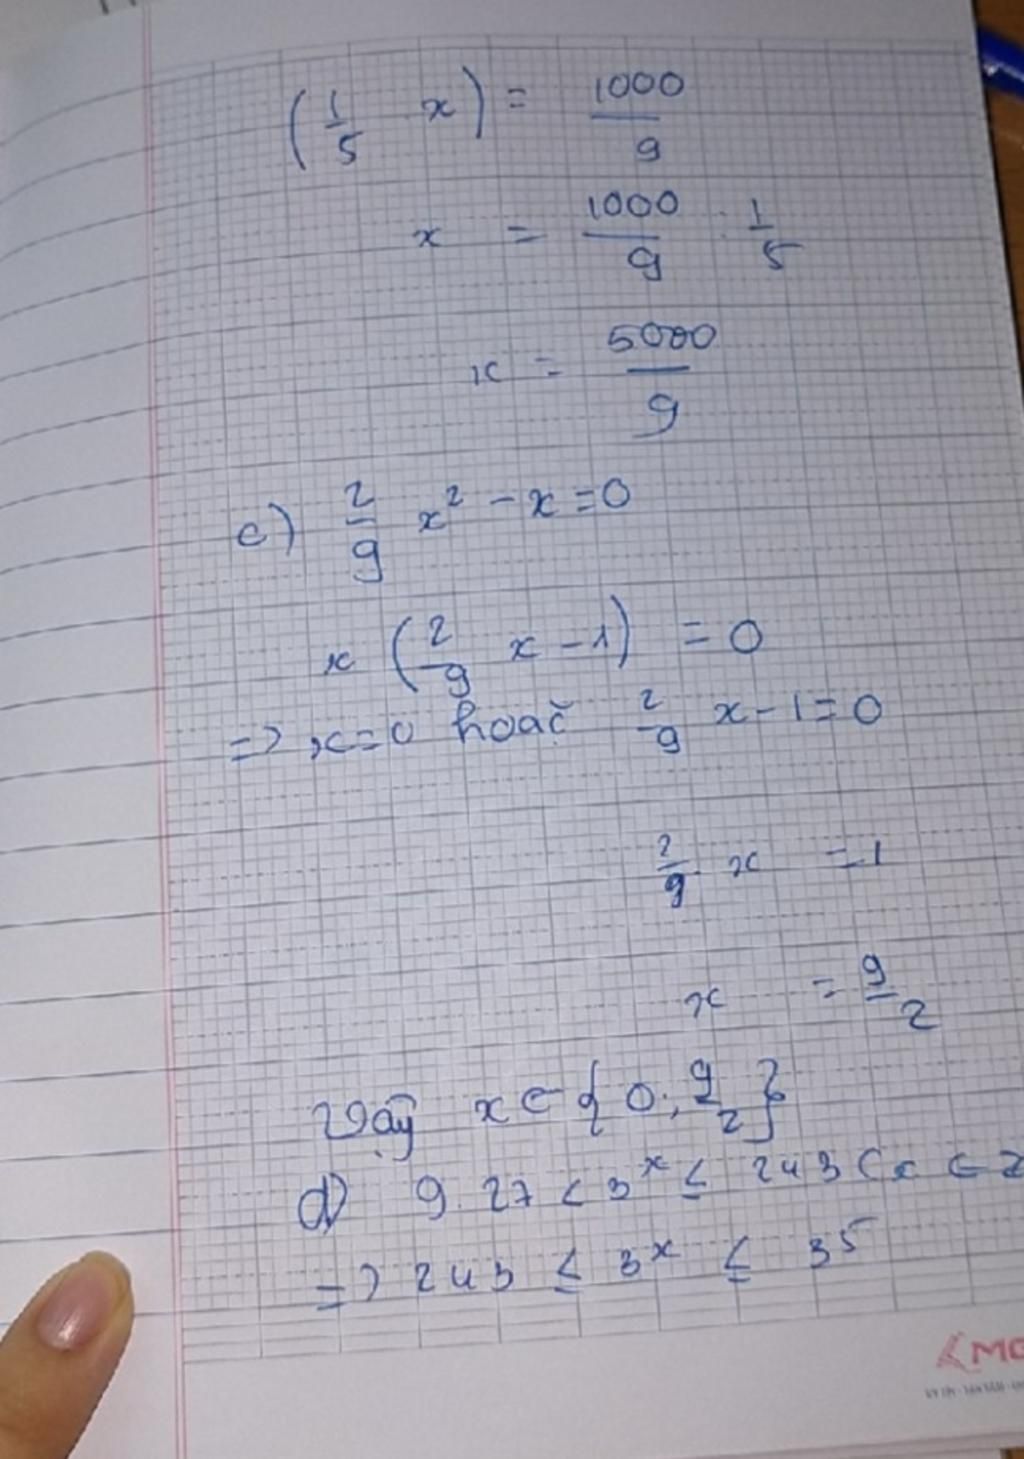 (1/5 x) = 1000/9
x = 1000/9 . 1/5
x = 5000/9
c) 2/9 x² - x = 0
x (2/9 x - 1) = 0
=> x = 0 hoặc 2/9 x - 1 = 0
2/9 x = 1
x = 9/2
Vậy x ∈ {0; 9/2}
d) 9.27 ≤ 3ˣ ≤ 243 (x ∈ Z
=> 243 ≤ 3ˣ ≤ 3⁵